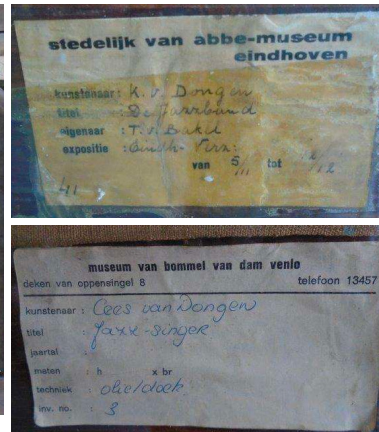 stedelijk van abbe-museum
eindhoven
kunstenaar: K. v. Dongen
titel : De Jazzband
eigenaar : T. v. Bakel
expositie : Eindh. Verz.
van 5/11 tot 2/12
museum van bommel van dam venlo
deken van oppensingel 8 telefoon 13457
kunstenaar : Cees van Dongen
titel : Jazz-singer
jaartal :
maten : h x br
techniek : olie/doek
inv. no. : 3